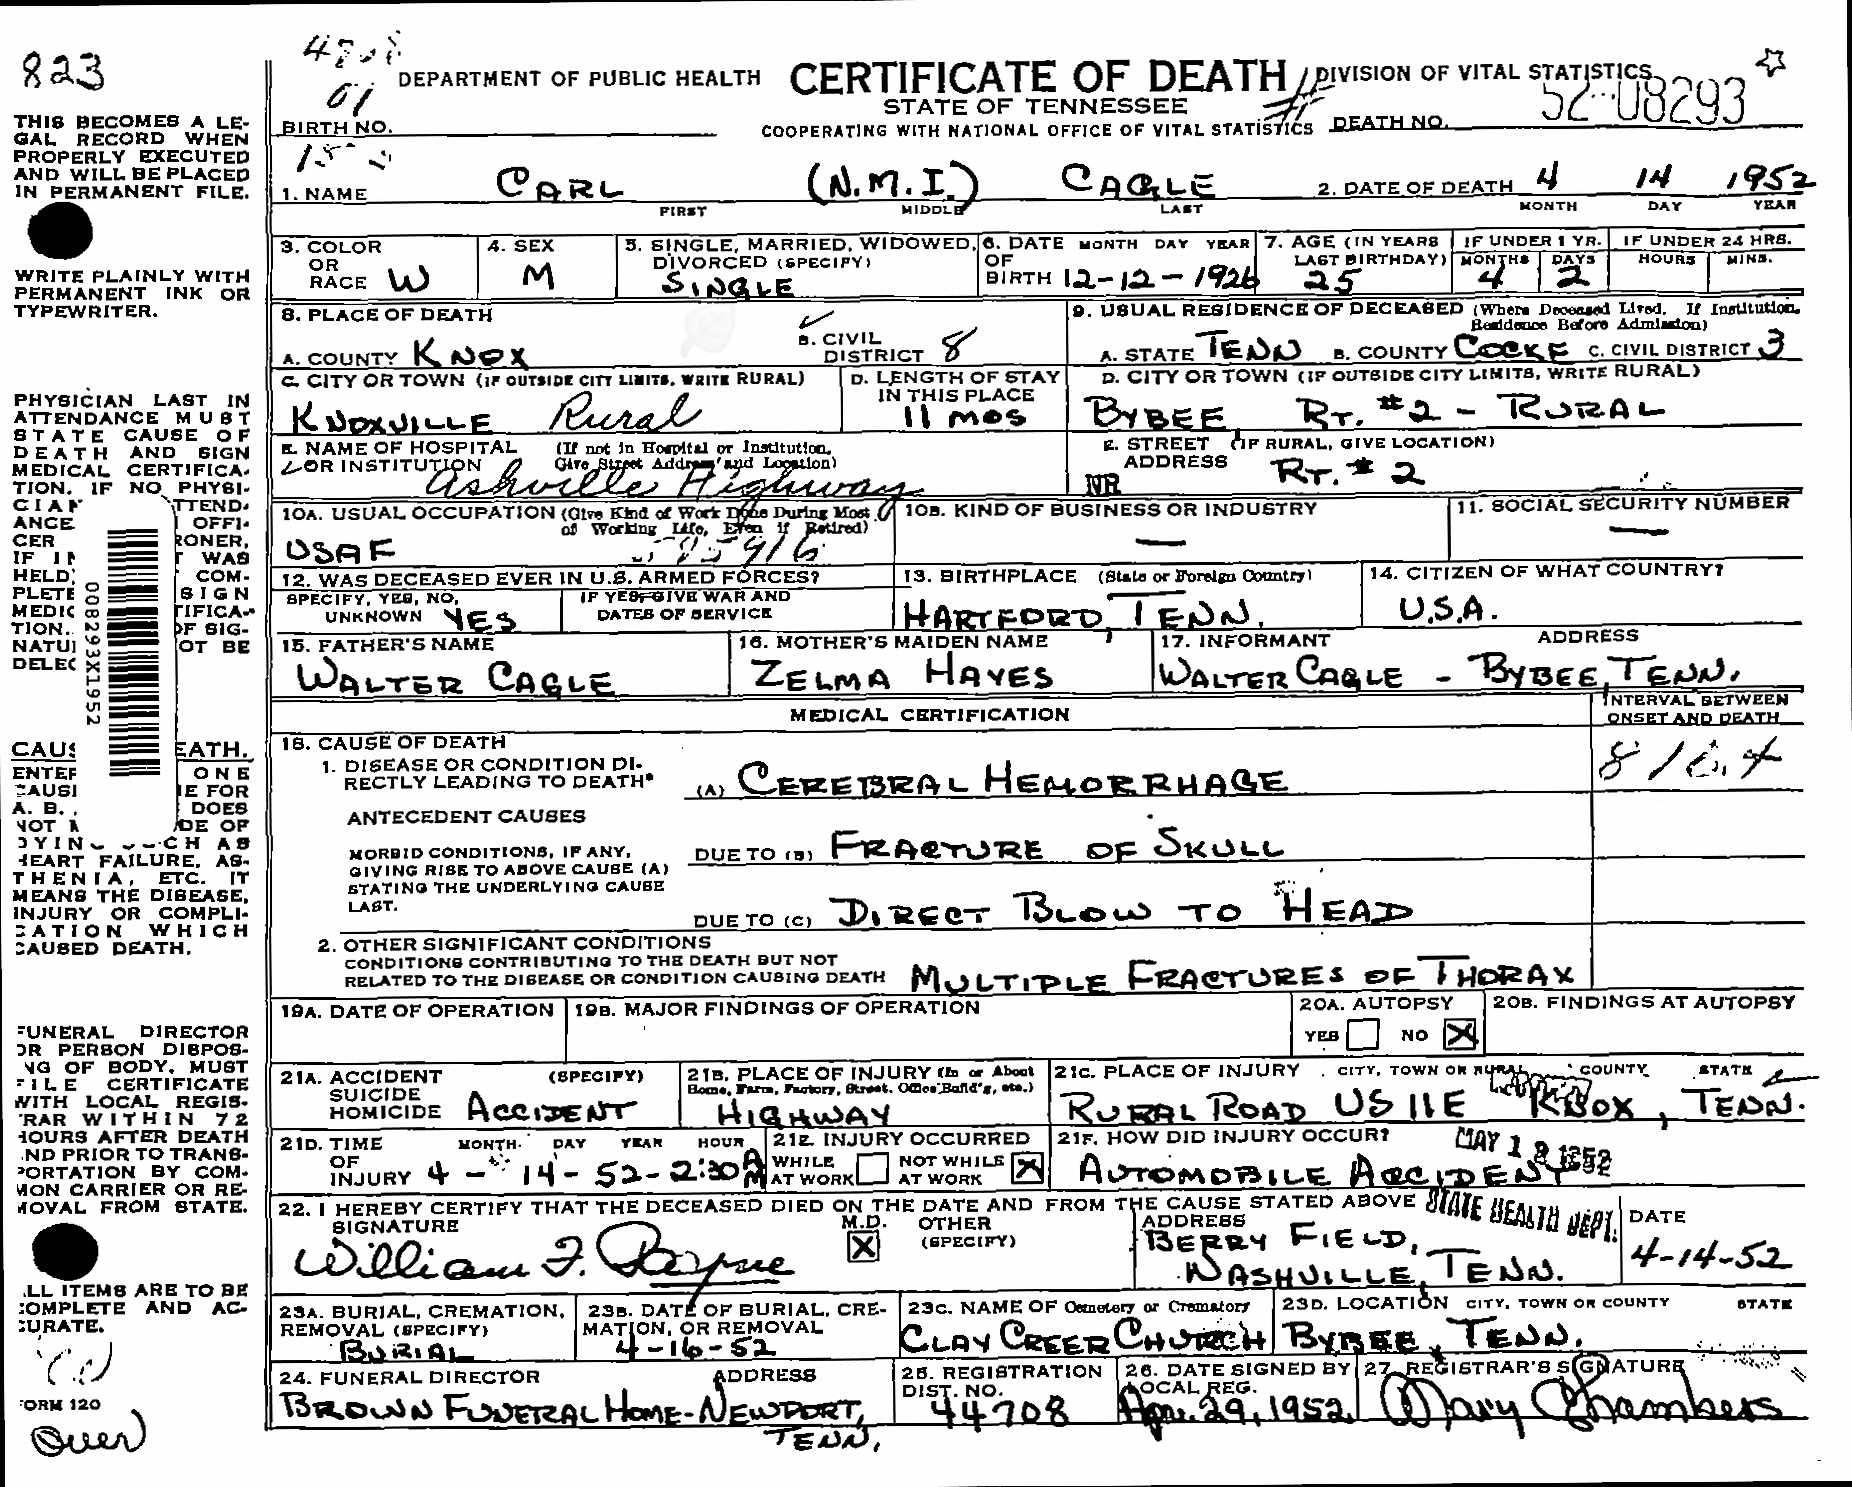 823
DEPARTMENT OF PUBLIC HEALTH CERTIFICATE OF DEATH DIVISION OF VITAL STATISTICS
STATE OF TENNESSEE
COOPERATING WITH NATIONAL OFFICE OF VITAL STATISTICS
01
BIRTH NO. DEATH NO. 52-08293
THIS BECOMES A LE-
GAL RECORD WHEN
PROPERLY EXECUTED
AND WILL BE PLACED
IN PERMANENT FILE.
1. NAME CARL (N.M.I.) CAGLE 2. DATE OF DEATH 4 14 1952
FIRST MIDDLE LAST MONTH DAY YEAR
WRITE PLAINLY WITH
PERMANENT INK OR
TYPEWRITER.
3. COLOR OR RACE W
4. SEX M
5. SINGLE, MARRIED, WIDOWED, DIVORCED (SPECIFY) SINGLE
6. DATE OF BIRTH MONTH DAY YEAR 12-12-1926
7. AGE (IN YEARS LAST BIRTHDAY) 25
IF UNDER 1 YR. MONTHS 4 DAYS 2
IF UNDER 24 HRS. HOURS MINS.
8. PLACE OF DEATH
A. COUNTY KNOX B. CIVIL DISTRICT 8
C. CITY OR TOWN (IF OUTSIDE CITY LIMITS, WRITE RURAL) KNOXVILLE Rural
D. LENGTH OF STAY IN THIS PLACE 11 MOS
E. NAME OF HOSPITAL OR INSTITUTION (If not in Hospital or Institution, Give Street Address and Location) Ashville Highway
9. USUAL RESIDENCE OF DECEASED (Where Deceased Lived. If Institution, Residence Before Admission)
A. STATE TENN B. COUNTY COCKE C. CIVIL DISTRICT 3
D. CITY OR TOWN (IF OUTSIDE CITY LIMITS, WRITE RURAL) BYBEE RT. #2 - RURAL
E. STREET ADDRESS (IF RURAL, GIVE LOCATION) RT. # 2
NR
PHYSICIAN LAST IN
ATTENDANCE MUST
STATE CAUSE OF
DEATH AND SIGN
MEDICAL CERTIFICA-
TION. IF NO PHYSI-
10A. USUAL OCCUPATION (Give Kind of Work Done During Most of Working Life, Even if Retired) USAF
10B. KIND OF BUSINESS OR INDUSTRY —
11. SOCIAL SECURITY NUMBER —
12. WAS DECEASED EVER IN U.S. ARMED FORCES?
SPECIFY, YES, NO, UNKNOWN YES
IF YES, GIVE WAR AND DATES OF SERVICE
13. BIRTHPLACE (State or Foreign Country) HARTFORD, TENN.
14. CITIZEN OF WHAT COUNTRY? U.S.A.
15. FATHER'S NAME WALTER CAGLE
16. MOTHER'S MAIDEN NAME ZELMA HAYES
17. INFORMANT ADDRESS WALTER CAGLE - BYBEE, TENN.
008293X1952
MEDICAL CERTIFICATION
INTERVAL BETWEEN ONSET AND DEATH
18. CAUSE OF DEATH
1. DISEASE OR CONDITION DIRECTLY LEADING TO DEATH* (A) CEREBRAL HEMORRHAGE
ANTECEDENT CAUSES
MORBID CONDITIONS, IF ANY, GIVING RISE TO ABOVE CAUSE (A) STATING THE UNDERLYING CAUSE LAST.
DUE TO (B) FRACTURE OF SKULL
DUE TO (C) DIRECT BLOW TO HEAD
2. OTHER SIGNIFICANT CONDITIONS
CONDITIONS CONTRIBUTING TO THE DEATH BUT NOT
RELATED TO THE DISEASE OR CONDITION CAUSING DEATH MULTIPLE FRACTURES OF THORAX
HEART FAILURE, AS-
THENIA, ETC. IT
MEANS THE DISEASE,
INJURY OR COMPLI-
CATION WHICH
CAUSED DEATH.
19A. DATE OF OPERATION
19B. MAJOR FINDINGS OF OPERATION
20A. AUTOPSY YES NO X
20B. FINDINGS AT AUTOPSY
FUNERAL DIRECTOR
OR PERSON DISPOS-
ING OF BODY, MUST
FILE CERTIFICATE
WITH LOCAL REGIS-
TRAR WITHIN 72
HOURS AFTER DEATH
AND PRIOR TO TRANS-
PORTATION BY COM-
MON CARRIER OR RE-
MOVAL FROM STATE.
21A. ACCIDENT SUICIDE HOMICIDE (SPECIFY) ACCIDENT
21B. PLACE OF INJURY (In or About Home, Farm, Factory, Street, Office Build'g, etc.) HIGHWAY
21C. PLACE OF INJURY CITY, TOWN OR RURAL COUNTY STATE RURAL ROAD US 11E KNOX, TENN.
21D. TIME OF INJURY MONTH DAY YEAR HOUR 4 - 14 - 52 - 2:30 AM
21E. INJURY OCCURRED WHILE AT WORK NOT WHILE AT WORK X
21F. HOW DID INJURY OCCUR? AUTOMOBILE ACCIDENT
MAY 1 2 1952
STATE HEALTH DEPT.
22. I HEREBY CERTIFY THAT THE DECEASED DIED ON THE DATE AND FROM THE CAUSE STATED ABOVE
SIGNATURE William F. M.D. X OTHER (SPECIFY)
ADDRESS BERRY FIELD, NASHVILLE, TENN.
DATE 4-14-52
ALL ITEMS ARE TO BE
COMPLETE AND AC-
CURATE.
23A. BURIAL, CREMATION, REMOVAL (SPECIFY) BURIAL
23B. DATE OF BURIAL, CREMATION, OR REMOVAL 4-16-52
23C. NAME OF Cemetery or Crematory CLAY CREEK CHURCH
23D. LOCATION CITY, TOWN OR COUNTY STATE BYBEE, TENN.
24. FUNERAL DIRECTOR ADDRESS BROWN FUNERAL HOME - NEWPORT, TENN.
25. REGISTRATION DIST. NO. 44708
26. DATE SIGNED BY LOCAL REG. Apr. 29, 1952
27. REGISTRAR'S SIGNATURE Mary Chambers
FORM 120
Over